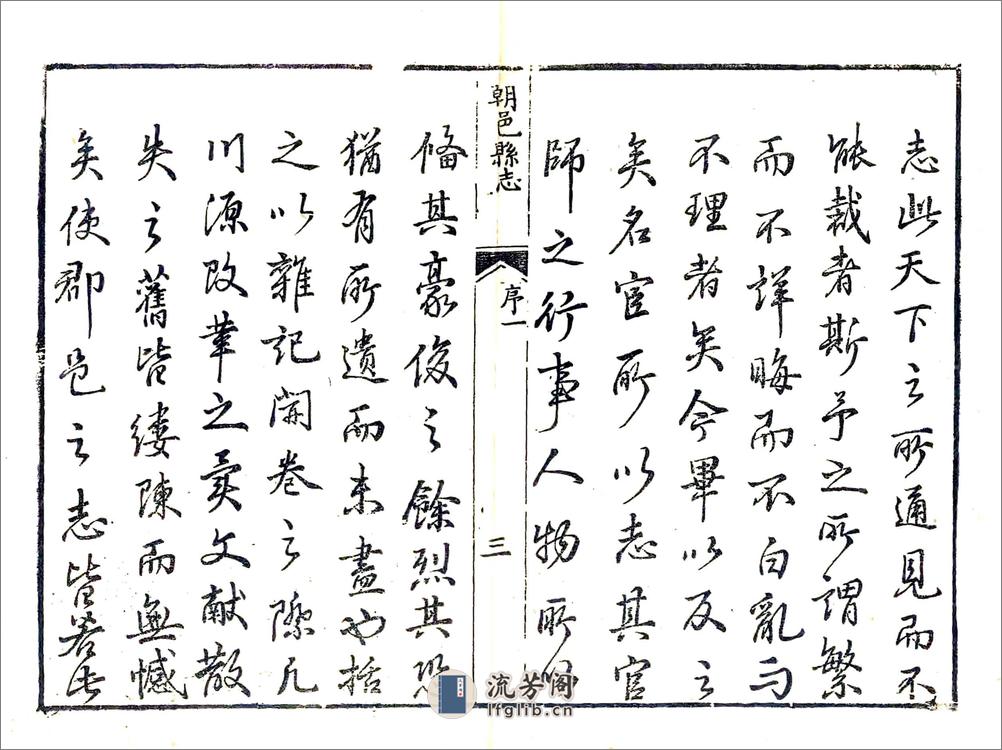 志此天下之所通見而不
能裁者斯予之所謂繁
而不詳晦而不白亂而
不理者矣今畢以反之
矣名宦所以志其官
師之行事人物所以
朝邑縣志
序一
三
備其豪俊之餘烈其恐
猶有所遺而未盡也括
之以雜記開卷之際凡
川源改革之異文献散
失之舊皆縷陳而無憾
矣使郡邑之志皆若此
流芳阁
lfglib.cn